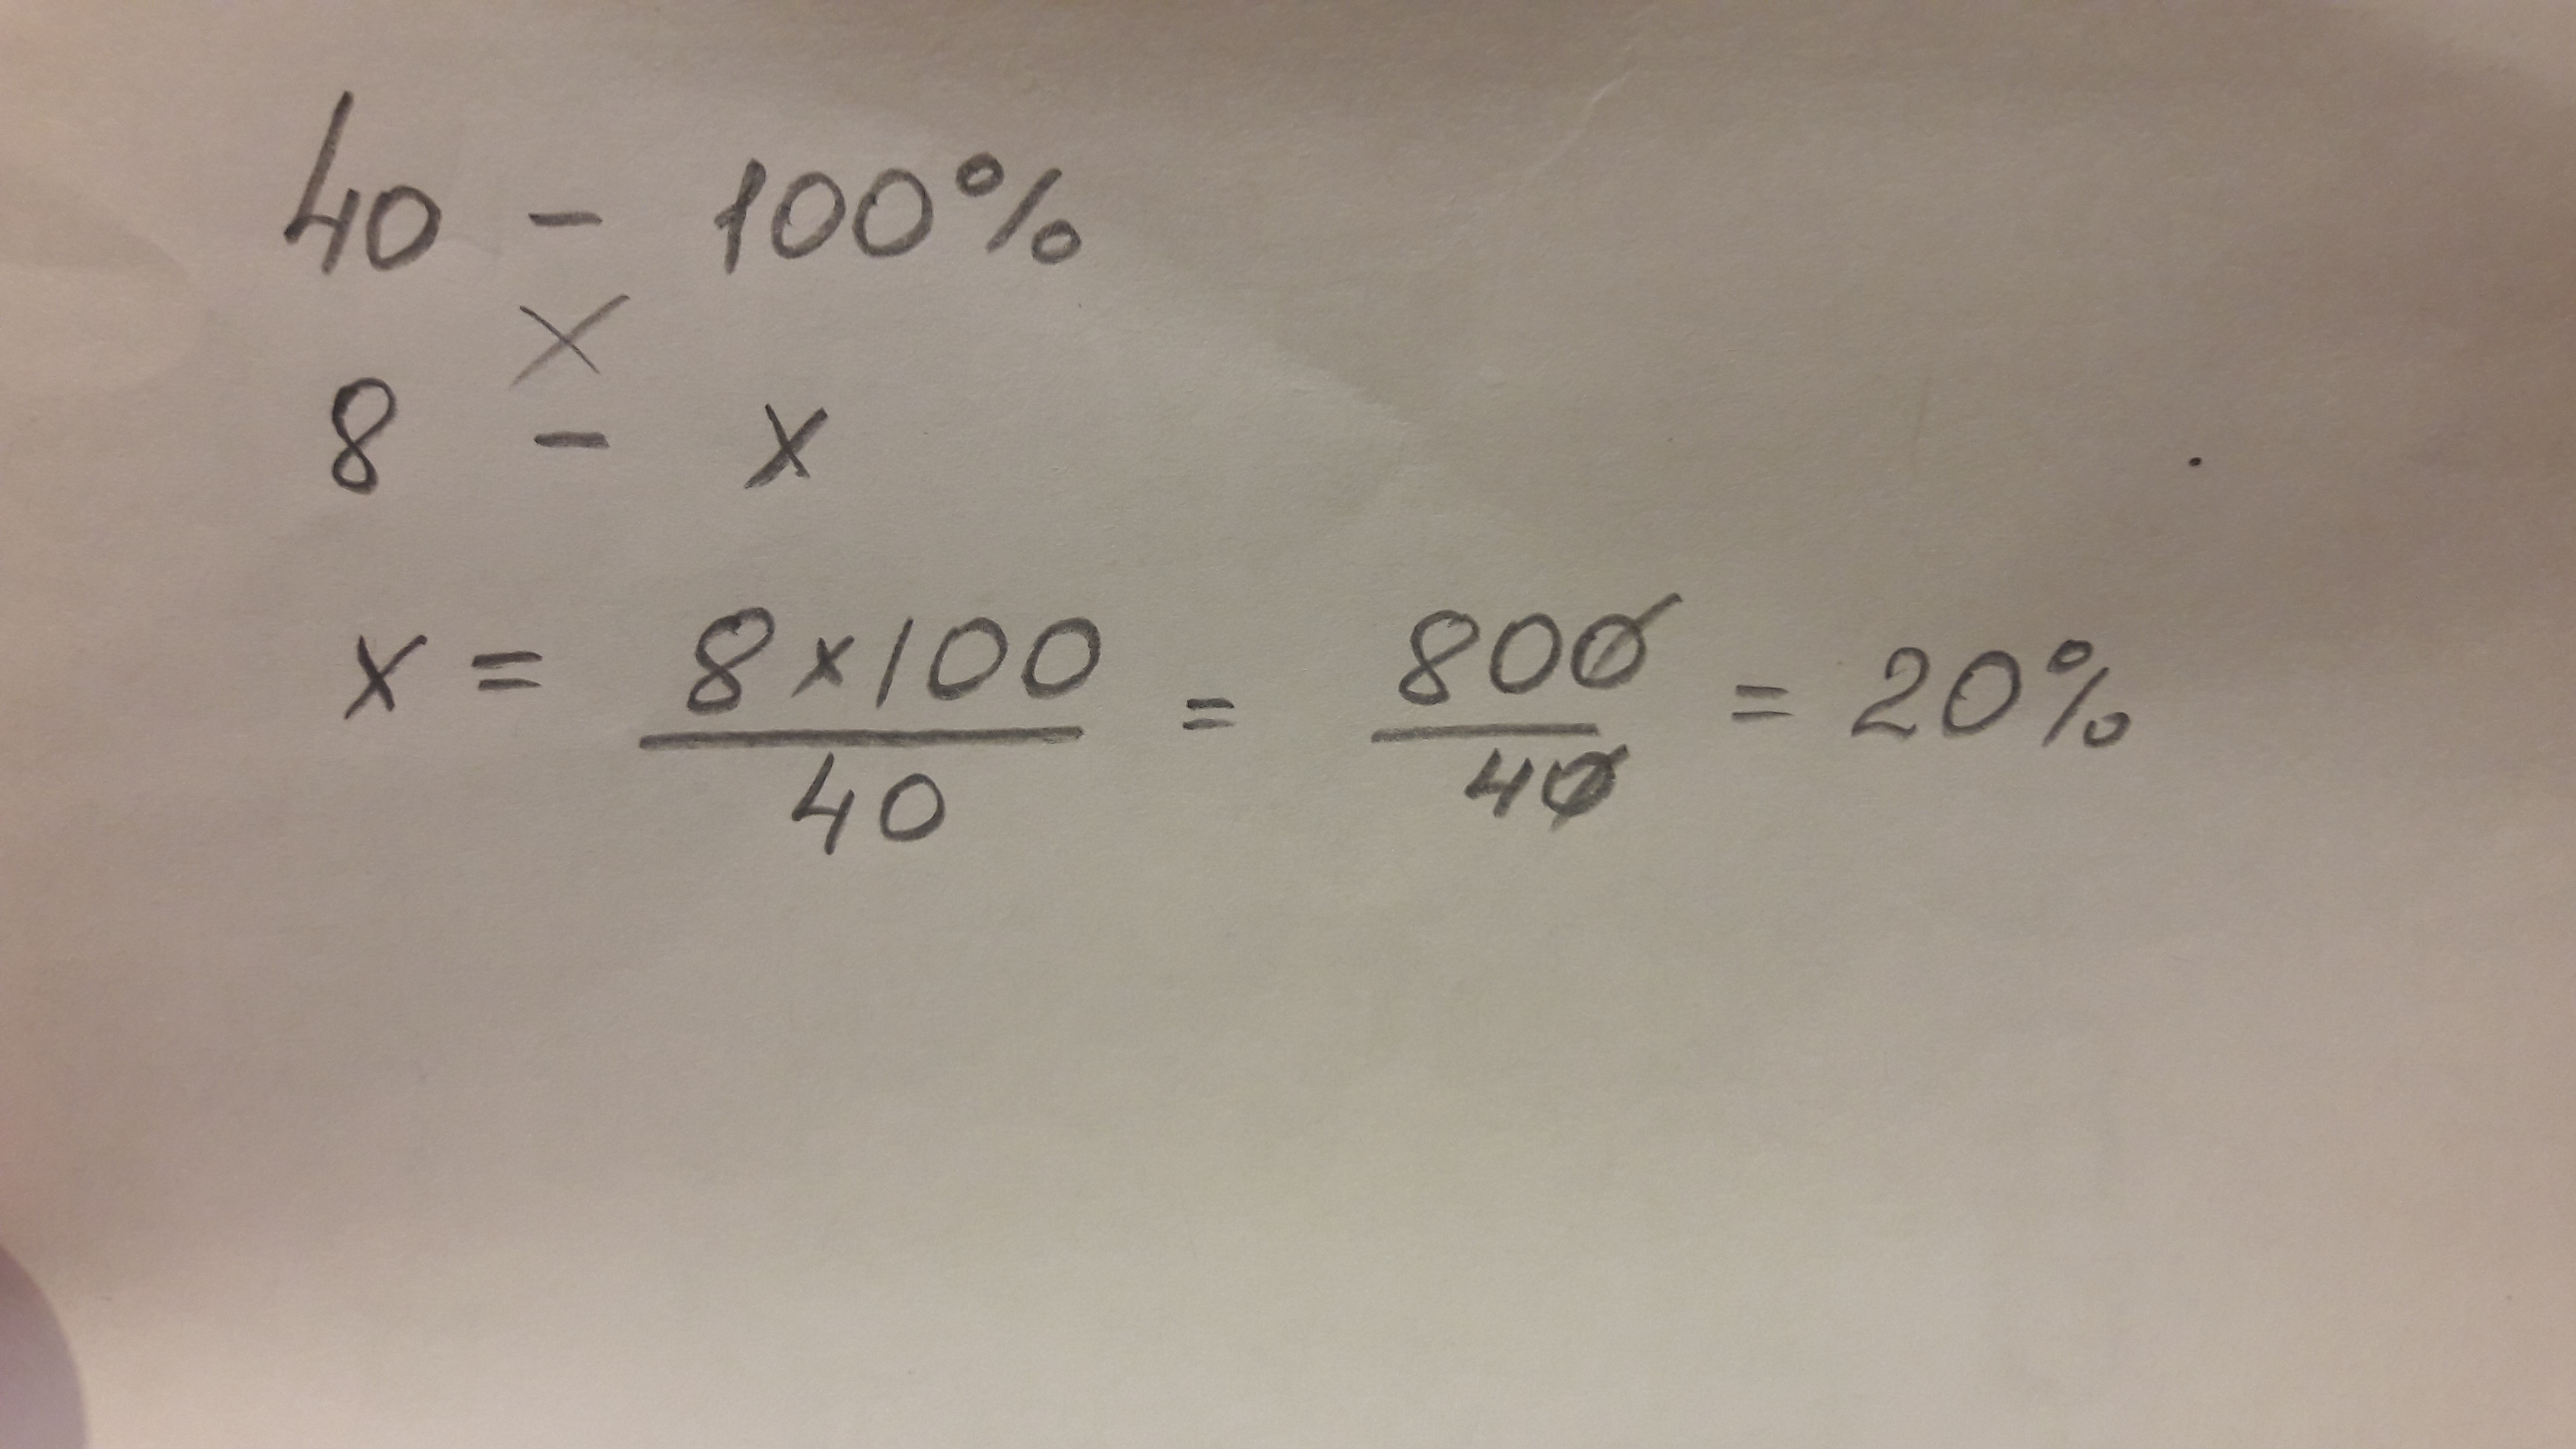 40 - 100%
×
8 - x
x = 8×100/40 = 800/40 = 20%